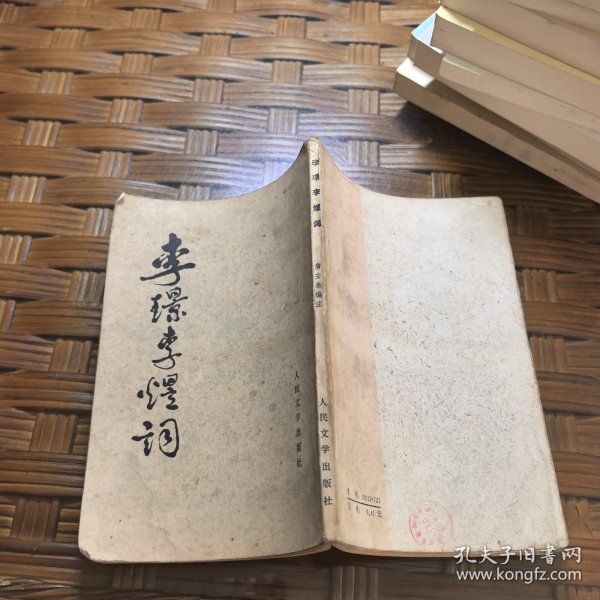 李璟李煜词
人民文学出版社
李璟李煜词
詹安泰编注
人民文学出版社
书号 10019·720
定价 0.41 元
孔夫子旧书网
www.kongfz.com